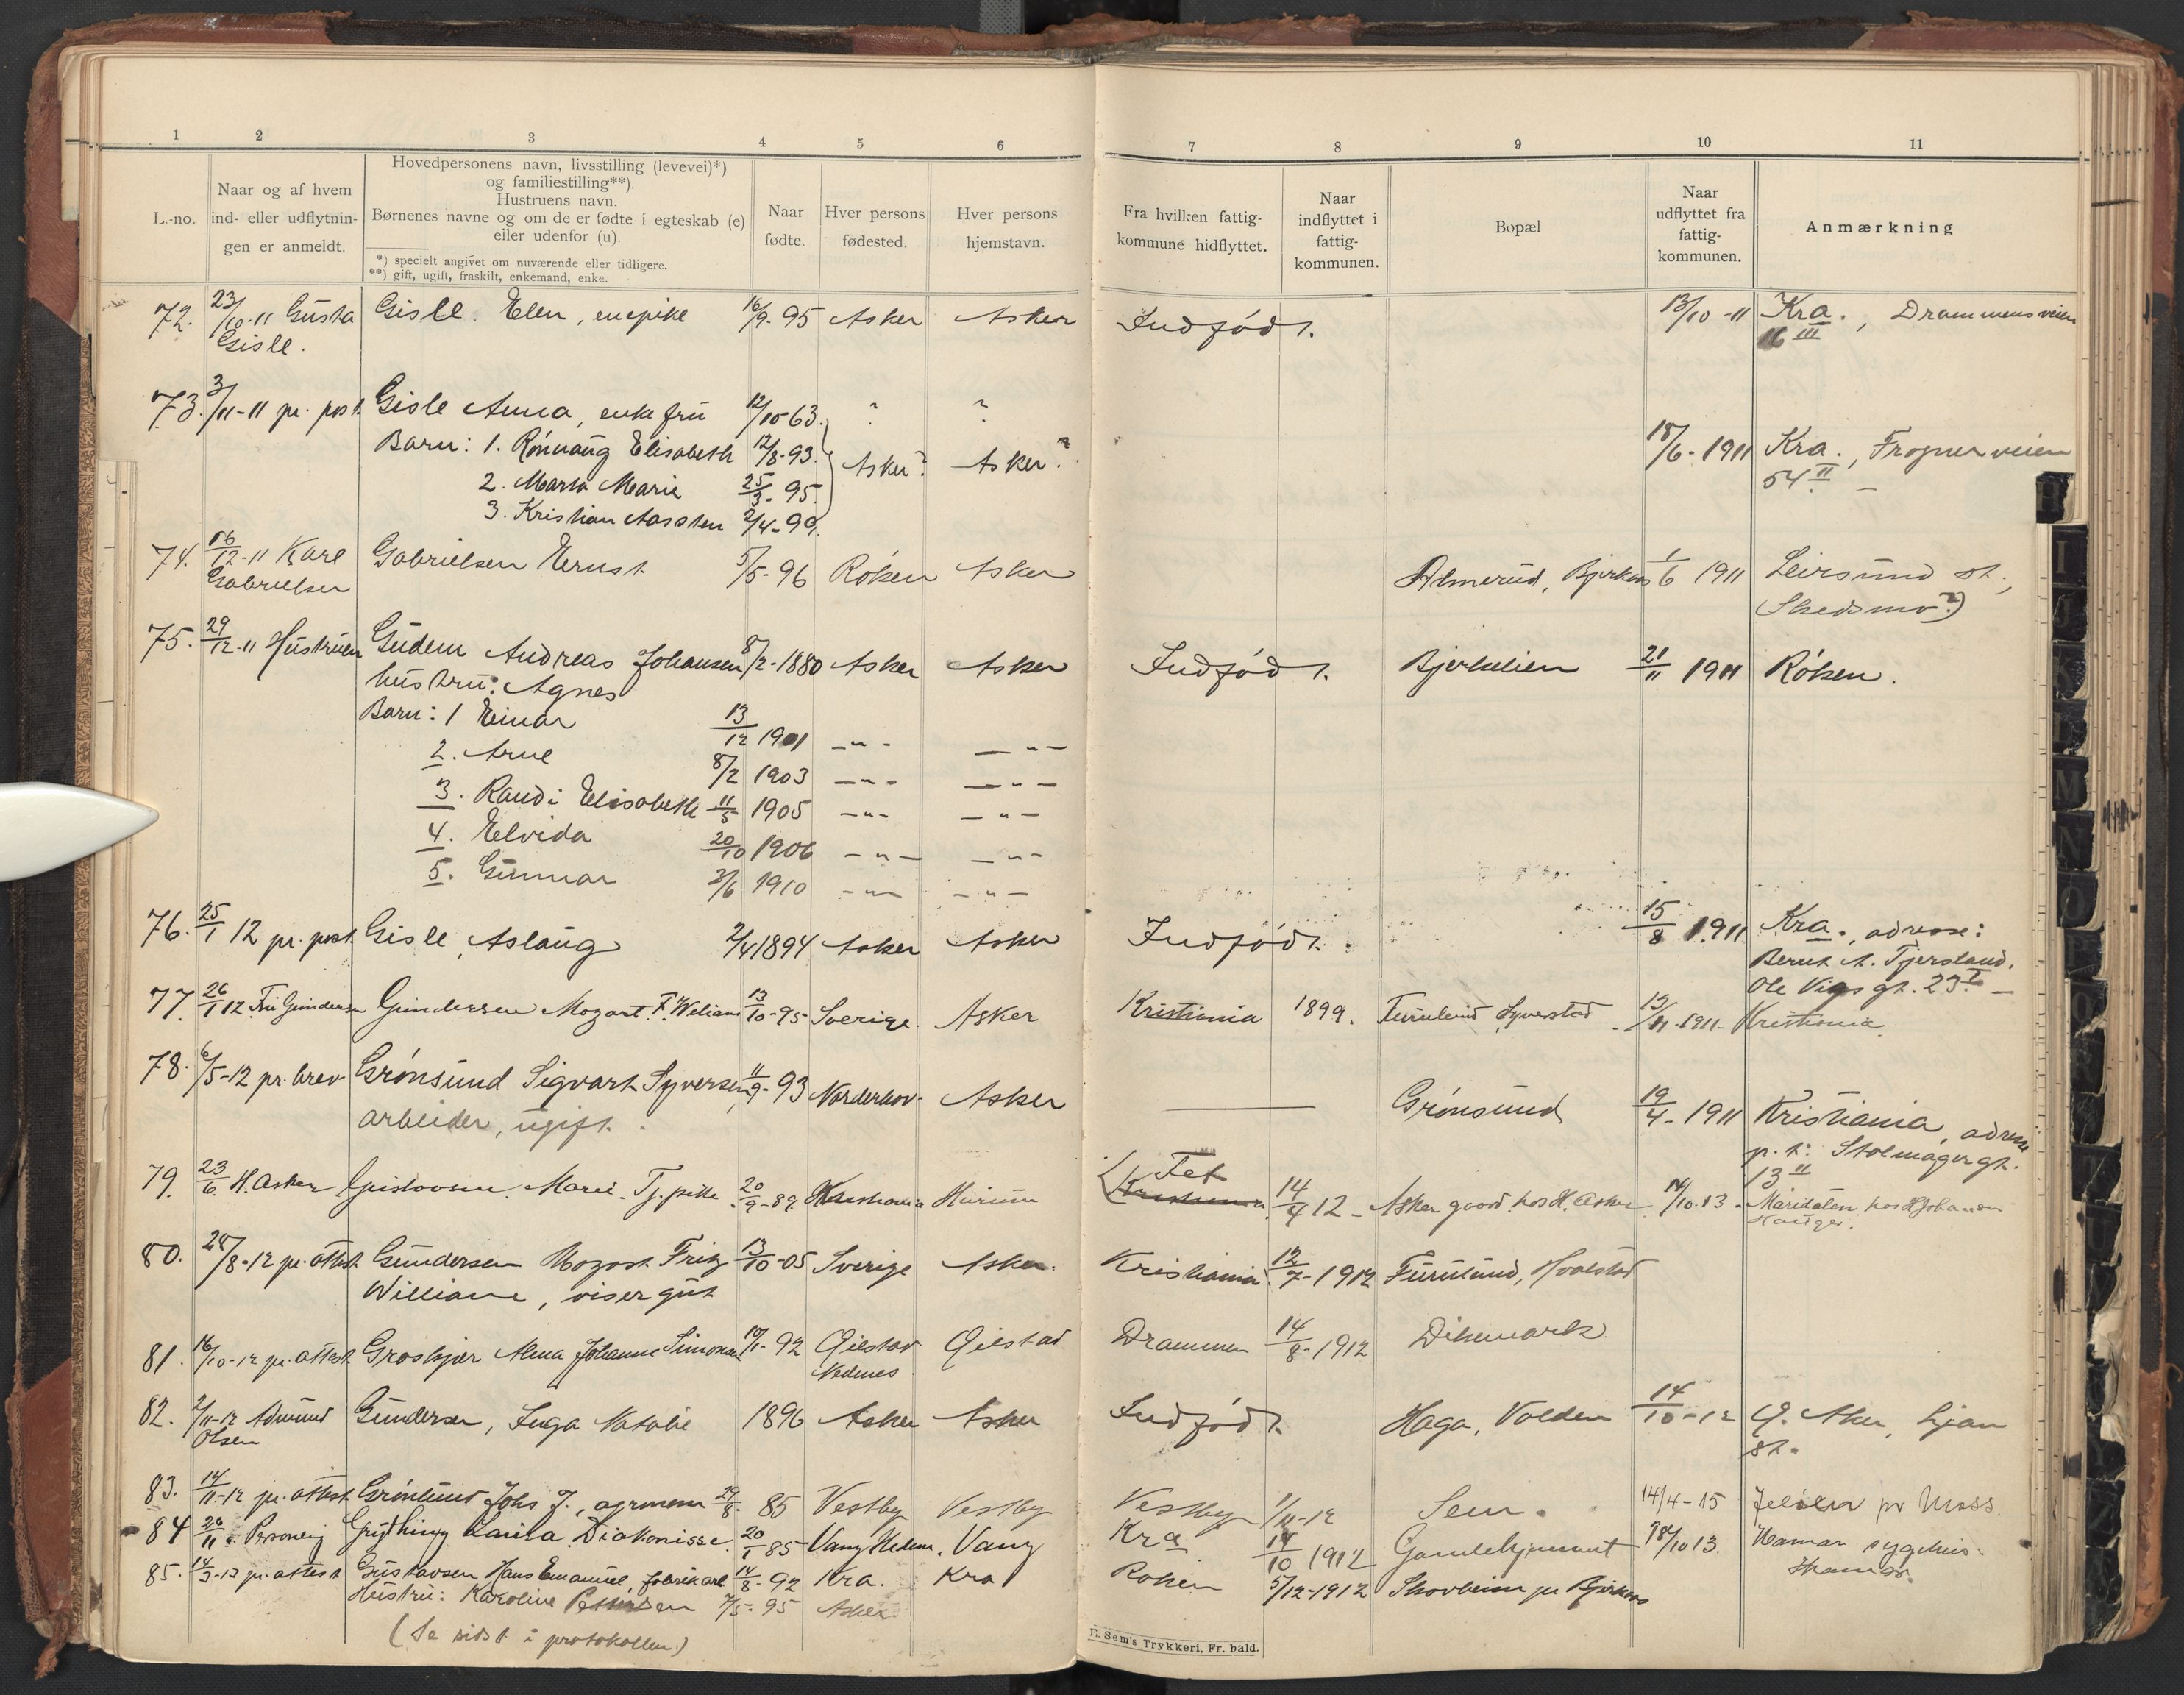 1 2 3 4 5 6 7 8 9 10 11
L.-no.
Naar og af hvem
ind- eller udflytnin-
gen er anmeldt.
Hovedpersonens navn, livsstilling (levevei)*)
og familiestilling**).
Hustruens navn.
Børnenes navne og om de er fødte i egteskab (e)
eller udenfor (u).
*) specielt angivet om nuværende eller tidligere.
**) gift, ugift, fraskilt, enkemand, enke.
Naar
fødte.
Hver persons
fødested.
Hver persons
hjemstavn.
Fra hvilken fattig-
kommune hidflyttet.
Naar
indflyttet i
fattig-
kommunen.
Bopæl
Naar
udflyttet fra
fattig-
kommunen.
Anmærkning
72. 23/10-11 Gusta Gisle. Elen, enepike 16/9-95 Asker Asker Indfødt. 13/10-11 Kra., Drammensveien
Gisle. 16 III
73. 3/11-11 pr. post. Gisle Anna, enkefru 12/10-63. ? ?
Barn: 1. Rønnaug Elisabeth 12/8-93. Asker? Asker? 18/6-1911 Kra., Frognerveien
2. Marta Marie 25/3-95. 54 II
3. Kristian Aassten 2/4-99.
74. 16/12-11 Karl Gabrielsen Ernst 5/5-96 Røken Asker Almerud, Bjerkaas 1/6 1911 Leirsund st.,
Gabrielsen (Skedsmo?)
75. 29/12-11 Hustruen Gudem Andreas Johansen 8/2-1880 Asker Asker Indfødt. Bjerkelien 21/11 1911 Røken.
hustru: Agnes
Barn: 1 Einar 13/12 1901 -"- -"-
2. Arne 8/2 1903 -"- -"-
3. Randi Elisabeth 11/5 1905 -"- -"-
4. Elvida 20/10 1906 -"- -"-
5. Gunnar 3/6 1910 -"- -"-
76. 25/1 12 pr. post. Gisle, Aslaug 2/4 1894 Asker Asker Indfødt. 15/8 1911 Kra., adresse:
Bernt A. Tjersland.
Ole Vigs gt. 23 I
77. 26/1 12 Fru Gundersen Gundersen Mozart F. Weliam 13/10-95 Sverige. Asker Kristiania 1899. Furulund Syverstad 13/11-1911 Kristiania.
78. 6/5-12 pr. brev Grønsund Sigvart Syversen 11/9-93 Norderhov. Asker — Grønsund 19/4-1911 Kristiania, adresse
arbeider, ugift. p.t: Stolmagergt.
13 II
79. 23/6. H. Asker Gustavsen. Marie. Tj. pike 20/9-89. Kristiania Hurum Fet 14/4 12 - Asker gaard hos H. Asker 14/10.13 - Maridalen hos H Johansen
Kristiania.
80. 28/8-12 pr. attest Gundersen Mozart Fritz 13/10-05 Sverige Asker. Kristiania 12/7-1912 Furulund, Hvalstad
William, visergut
81. 16/10-12 pr. attest. Groskjær Alma Johanne Simonsen 10/1-92 Øiestad Øiestad Drammen 14/8-1912 Dikemark
Nedenes
82. 2/11-12 Admund Gundersen, Inga Natalie 1896 Asker Asker Indfødt. Haga, Volden 14/10-12 Ø. Aker, Ljan
Olsen st.
83. 14/11-12 pr. attest. Grønlund Johs J., agronom 29/8-85 Vestby Vestby Vestby 1/11-12 Sem. 14/4-15 Jeløen pr Moss.
84 26/11. Personlig Grything Laura. Diakonisse. 20/1 85 Vang Hedem. Vang Kra 14/10 1912 Gamlehjemmet 18/10 13. Hamar sygehus.
Hamar.
85. 14/3-13 pr. attest Gustavsen Hans Emanuel, fabrikarb. 14/8-92 Kra. Kra Røken 5/12-1912 Skovheim pr Bjerkaas
Hustru: Karoline Pettersen 7/5-95 Asker
(Se sidst i protokollen.)
E. Sem's Trykkeri, Fr. hald.